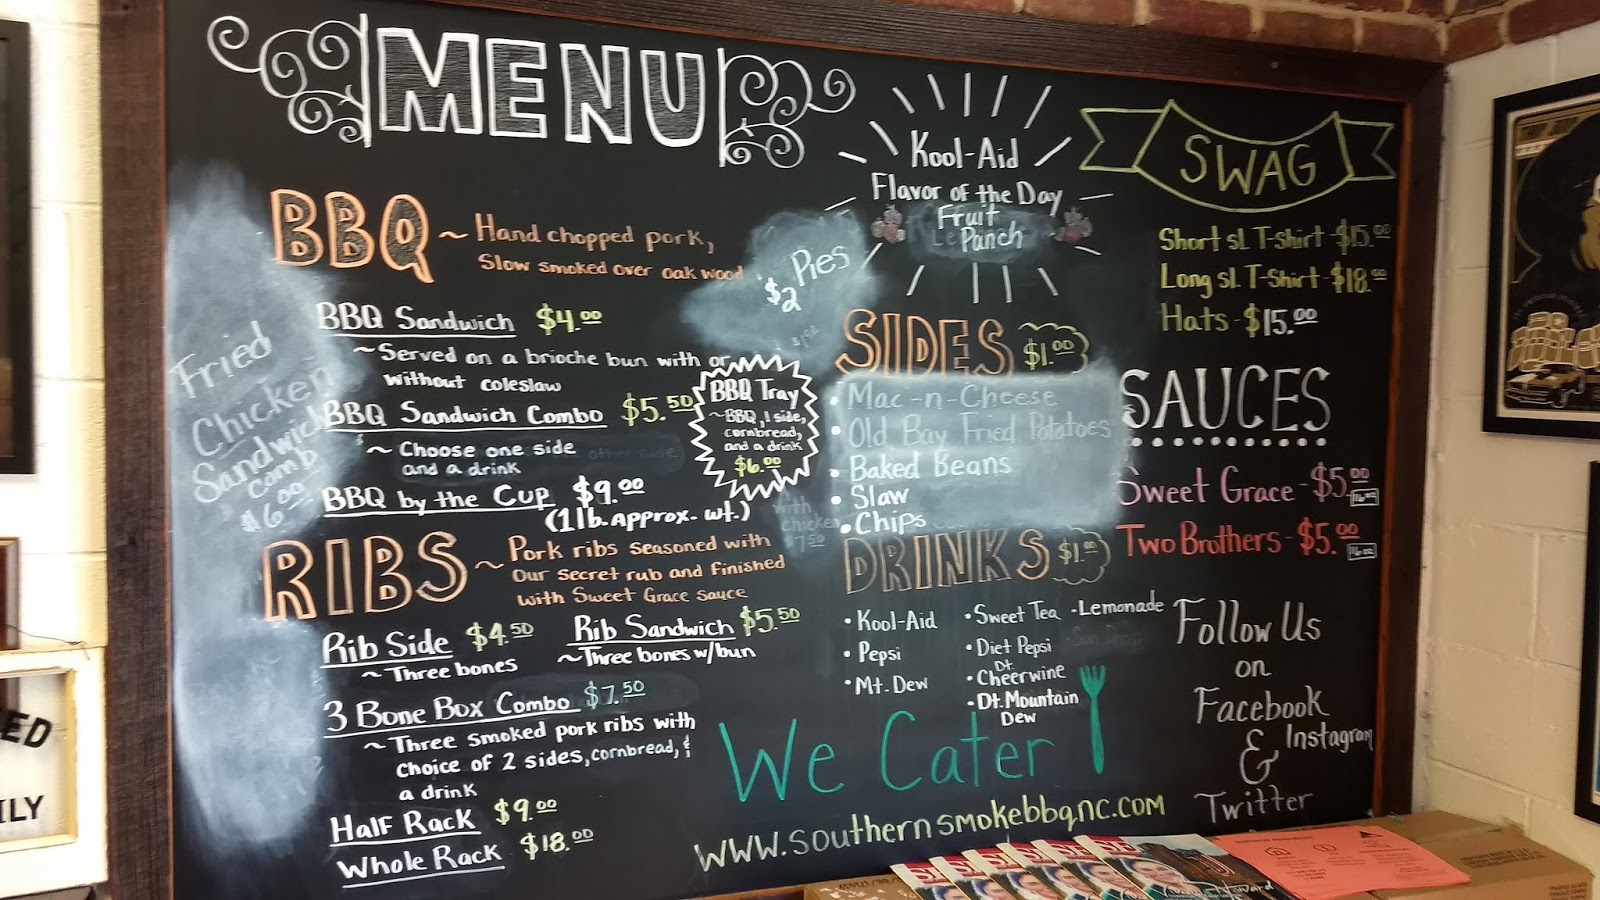 MENU
BBQ ~ Hand chopped pork,
Slow smoked over oak wood
BBQ Sandwich $4.00
~Served on a brioche bun with or
without coleslaw
BBQ Sandwich Combo $5.50
~ Choose one side
and a drink
BBQ by the Cup $9.00
(1 lb. approx. wt.)
BBQ Tray
~BBQ, 1 side,
cornbread,
and a drink
$6.00
with
chicken
$7.50
Fried
Chicken
Sandwich
Comb
$6.00
Pies
$2
RIBS ~ Pork ribs seasoned with
Our secret rub and finished
with Sweet Grace sauce
Rib Side $4.50
~ Three bones
Rib Sandwich $5.50
~Three bones w/bun
3 Bone Box Combo $7.50
~ Three smoked pork ribs with
choice of 2 sides, cornbread, &
a drink
Half Rack $9.00
Whole Rack $18.00
Kool-Aid
Flavor of the Day
Fruit
Punch
SIDES $1.00
• Mac-n-Cheese
• Old Bay Fried Potatoes
• Baked Beans
• Slaw
• Chips
DRINKS $1.00
• Kool-Aid
• Pepsi
• Mt. Dew
• Sweet Tea
• Diet Pepsi
• Dt. Cheerwine
• Dt. Mountain
Dew
• Lemonade
Sun Drop
We Cater
www.southernsmokebbqnc.com
SWAG
Short sl. T-shirt - $15.00
Long sl. T-shirt - $18.00
Hats - $15.00
SAUCES
Sweet Grace - $5.00 16oz
Two Brothers - $5.00 16oz
Follow Us
on
Facebook
& Instagram
Twitter
ED
ILY